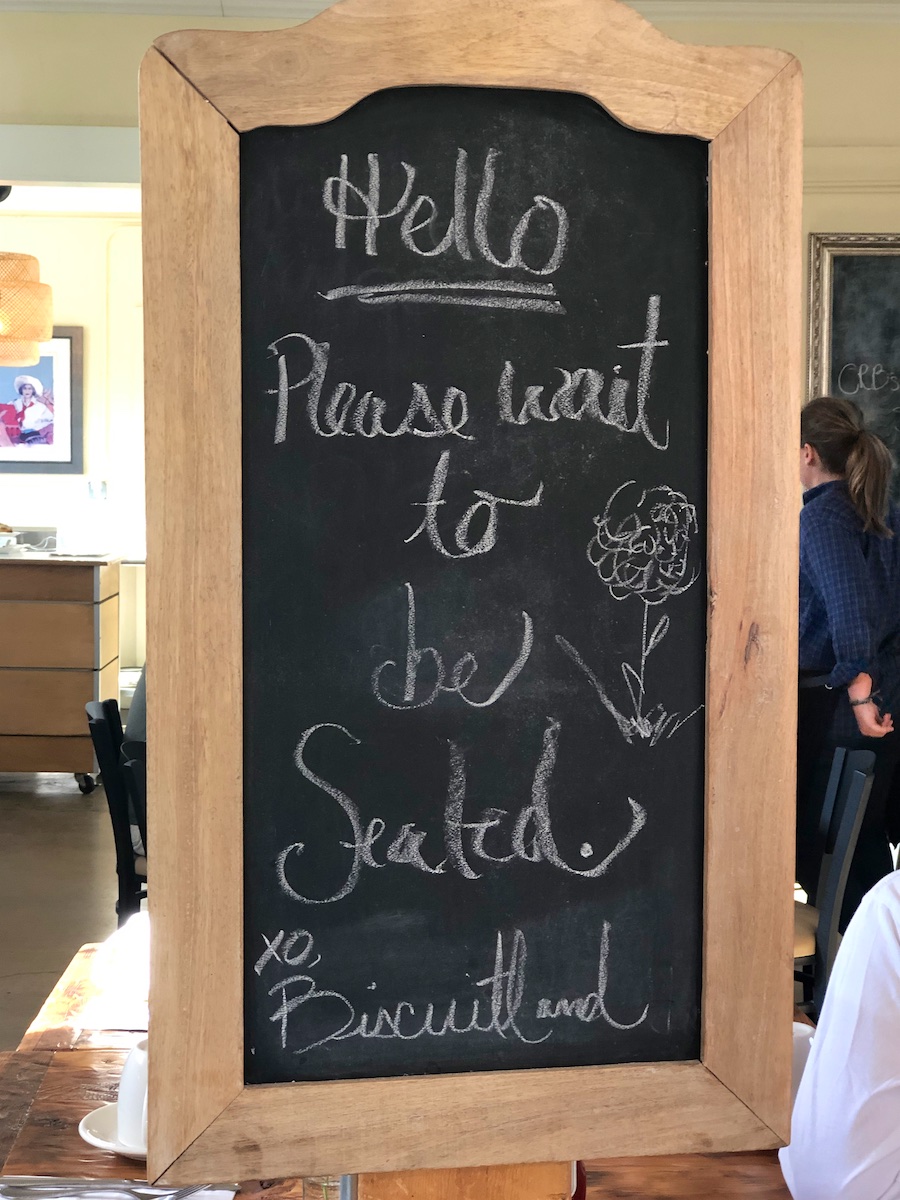 Hello
Please wait
to
be
Seated.
xo,
Biscuitland